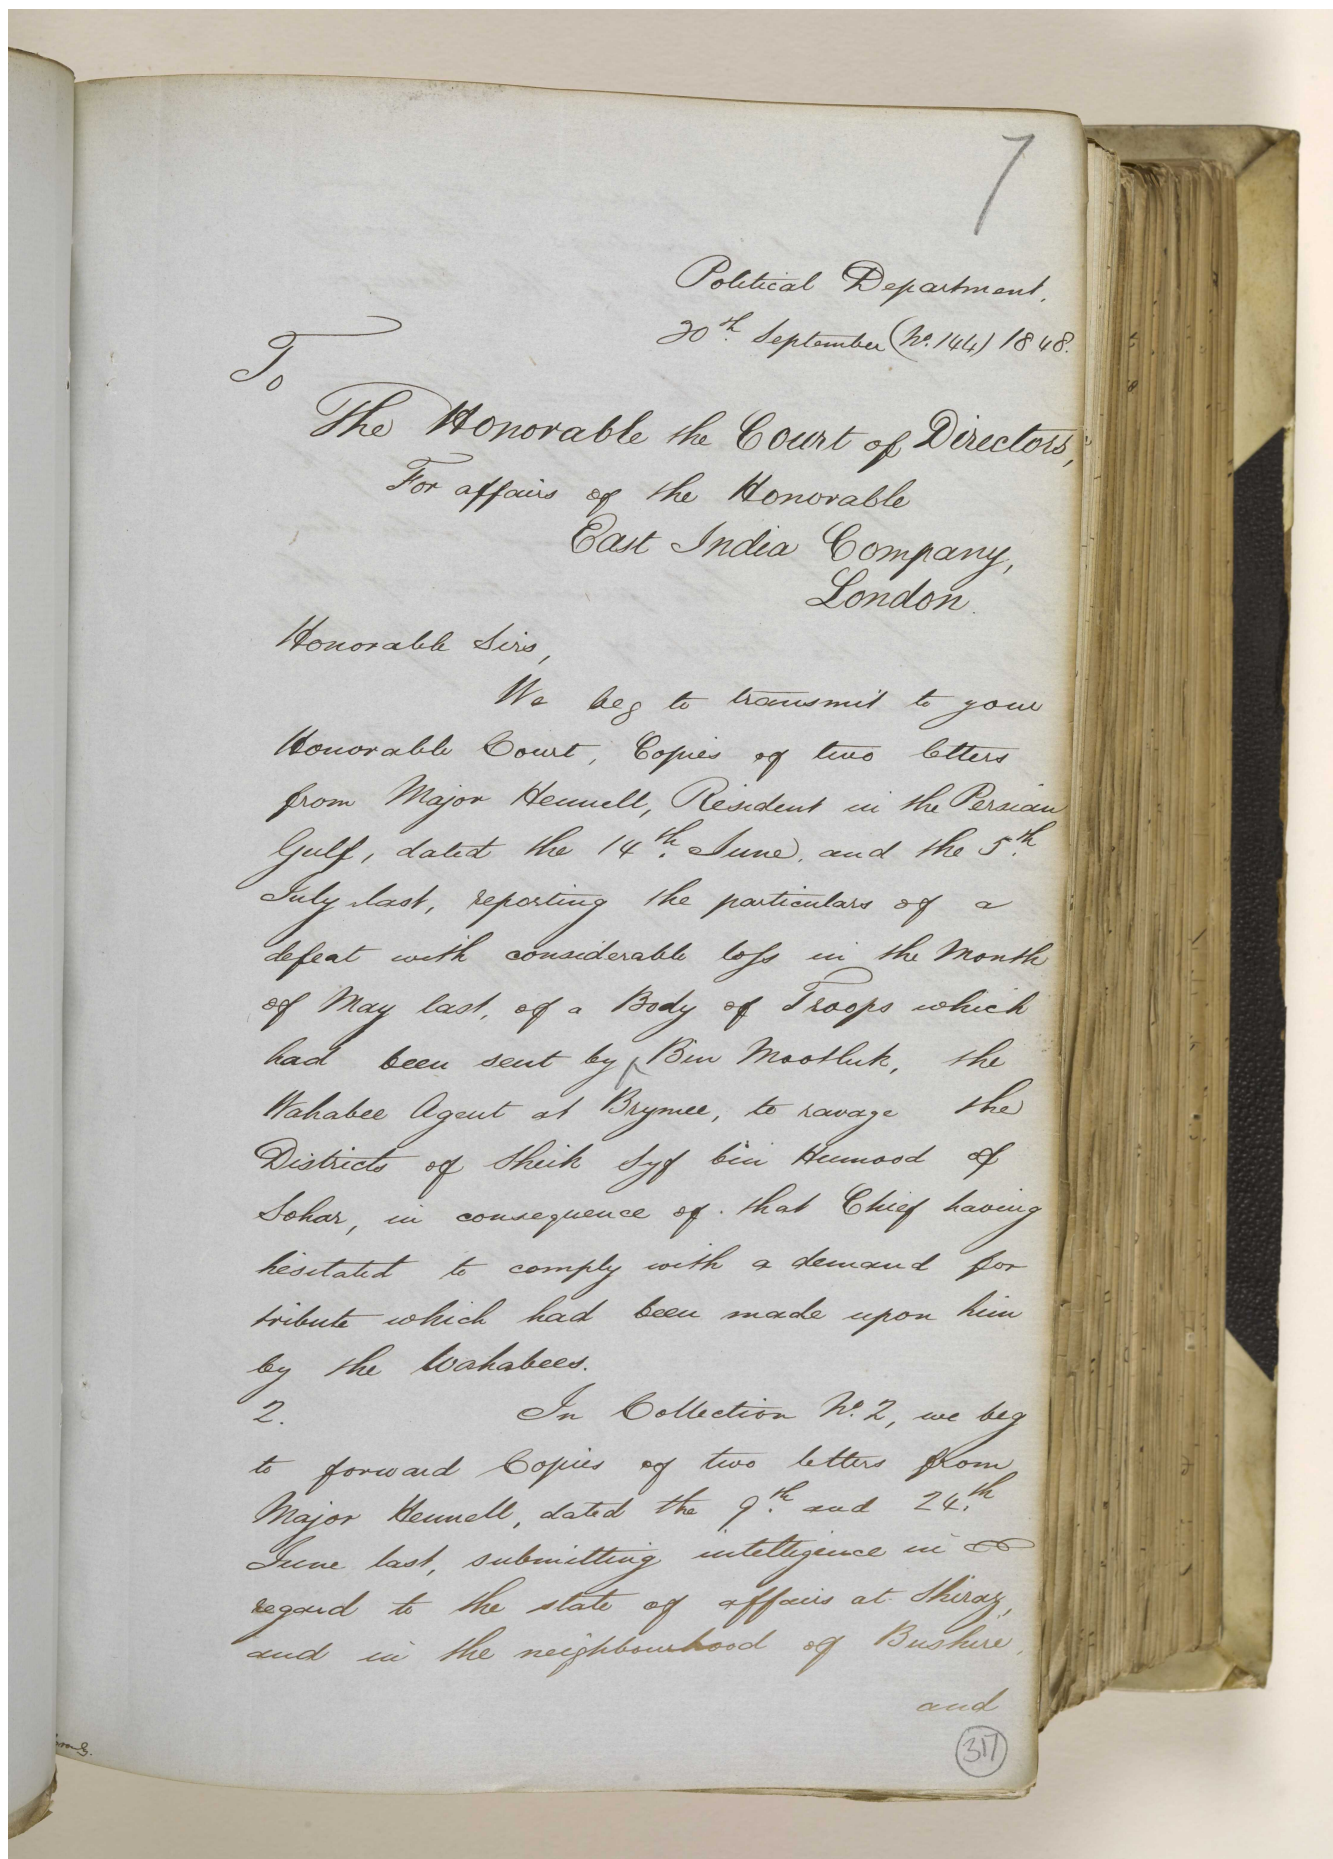 7
Political Department.
20th. September (No. 144) 1848.
To
The Honorable the Court of Directors,
For affairs of the Honorable
East India Company,
London.
Honorable Sirs,
We beg to transmit to your
Honorable Court, Copies of two letters
from Major Hennell, Resident in the Persian
Gulf, dated the 14th. June, and the 5th.
July last, reporting the particulars of a
defeat with considerable loss in the Month
of May last, of a Body of Troops which
had been sent by Bin Mootluk, the
Wahabee Agent at Brymee, to ravage the
Districts of Sheik Syf bin Humood of
Sohar, in consequence of that Chief having
hesitated to comply with a demand for
tribute which had been made upon him
by the Wahabees.
2. In Collection No. 2, we beg
to forward Copies of two letters from
Major Hennell, dated the 9th. and 24th.
June last, submitting intelligence in
regard to the state of affairs at Shiraz,
and in the neighbourhood of Bushire,
and
317